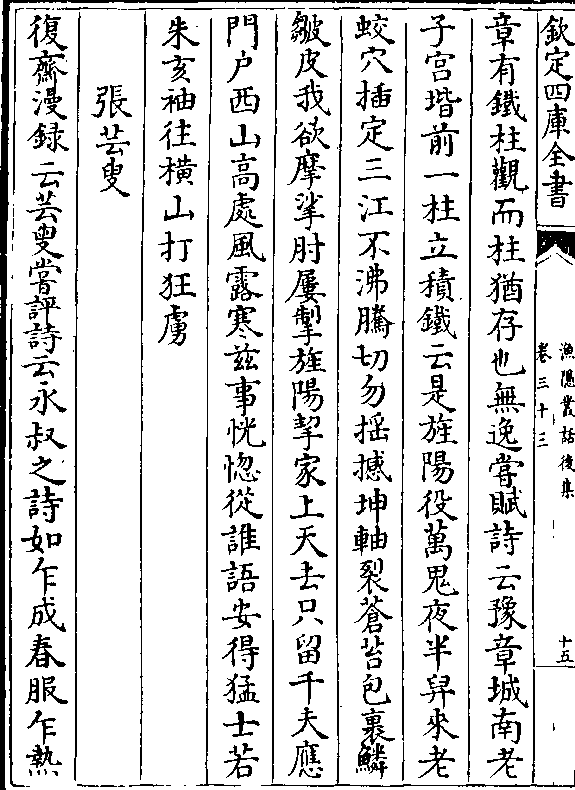 欽定四庫全書
漁隱叢話後集
卷三十三
十五
章有鐵柱觀而柱猶存也無逸嘗賦詩云豫章城南老
子宫堦前一柱立積鐵云是旌陽役萬鬼夜半舁來老
蛟穴插定三江不沸騰切勿摇撼坤軸裂蒼苔包裹鱗
皴皮我欲摩挲肘屢掣旌陽挈家上天去只留千夫應
門户西山高處風露寒兹事恍惚從誰語安得猛士若
朱亥袖往横山打狂虜
張芸叟
復齋漫録云芸叟嘗評詩云永叔之詩如乍成春服乍熱